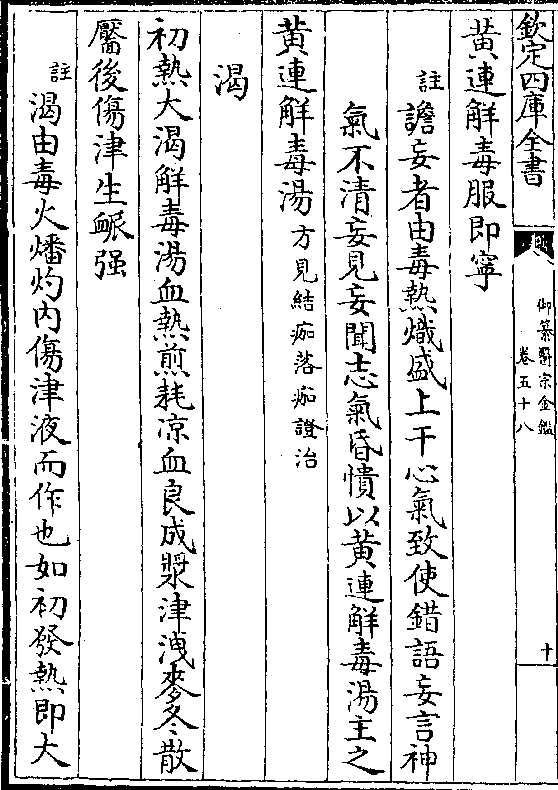 欽定四庫全書
御纂醫宗金鑑
卷五十八
十
黃連解毒服即寧
註 譫妄者由毒熱熾盛上干心氣致使錯語妄言神
氣不清妄見妄聞志氣昏憒以黃連解毒湯主之
黃連解毒湯 方見結痂落痂證治
渴
初熱大渴解毒湯血熱煎耗凉血良成漿津洩麥冬散
靨後傷津生脈强
註 渴由毒火燔灼內傷津液而作也如初發熱即大